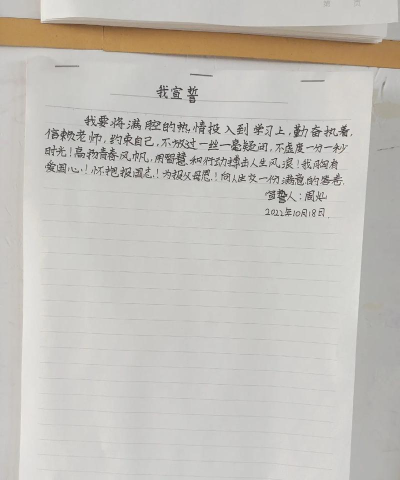 我宣誓
我要将满腔的热情投入到学习上，勤奋执着，
信赖老师，约束自己，不放过一丝一毫疑问，不虚度一分一秒
时光！高扬青春风帆，用智慧和行动搏击人生风浪！我胸有
爱国心！怀抱报国志！为报父母恩！向人生交一份满意的答卷.
宣誓人：周灿
2022年10月18日.